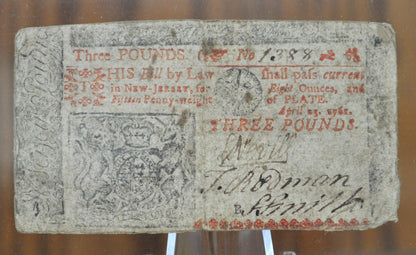 Three POUNDS. No 1388
THIS Bill by Law shall pass current
in New-Jersey, for Eight Ounces, and
Fifteen Penny-weight of PLATE.
April 23. 1762.
THREE POUNDS.
T. Rodman
S Smith